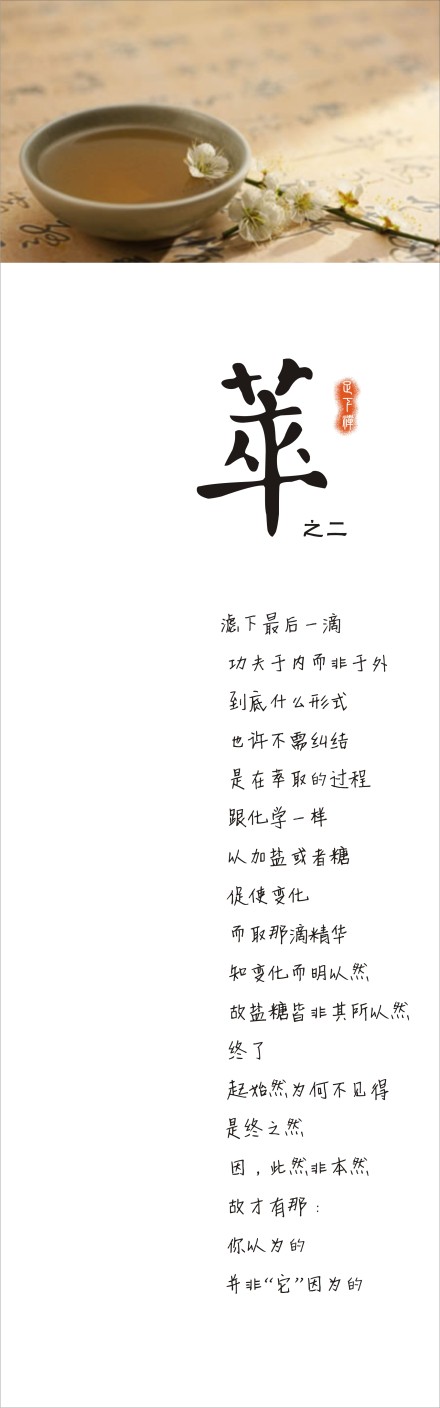 萃
足下禅
之二
滤下最后一滴
功夫于内而非于外
到底什么形式
也许不需纠结
是在萃取的过程
跟化学一样
以加盐或者糖
促使变化
而取那滴精华
知变化而明以然
故盐糖皆非其所以然
终了
起始然为何不见得
是终之然
因，此然非本然
故才有那：
你以为的
并非“它”因为的